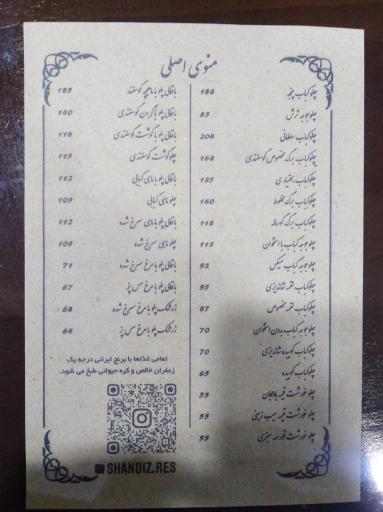 منوی اصلی
چلوکباب پنجر 188
چلو جوجه ترش 85
چلوکباب سلطانی 206
چلوکباب برگ مخصوص گوسفندی 168
چلوکباب بختیاری 135
چلوکباب برگ مخلوط 140
چلوکباب برگ گوساله 118
چلو جوجه کباب با استخوان 113
چلو جوجه کباب مکزیکی 92
چلوکباب لقمه شاندیزی 99
چلوکباب لقمه مخصوص 87
چلو جوجه کباب بدون استخوان 70
چلوکباب کوبیده شاندیزی 70
چلوکباب کوبیده 65
چلو خورشت قیمه بادمجان 55
چلو خورشت قیمه سیب زمینی 55
چلو خورشت قورمه سبزی 55
باقالی پلو با ماهیچه گوسفند 185
باقالی پلو با گردن گوسفندی 180
باقالی پلو با گوشت گوسفندی 118
چلو گوشت گوسفندی 115
باقالی پلو با ماهی کبابی 112
چلو ماهی کبابی 109
باقالی پلو با ماهی سرخ شده 112
چلو ماهی سرخ شده 109
باقالی پلو با مرغ سرخ شده 71
باقالی پلو با مرغ مس پز 67
زرشک پلو با مرغ سرخ شده 68
زرشک پلو با مرغ مس پز 64
تمامی غذاها با برنج ایرانی درجه یک
زعفران خالص و کره حیوانی طبخ می شود.
SHANDIZ.RES